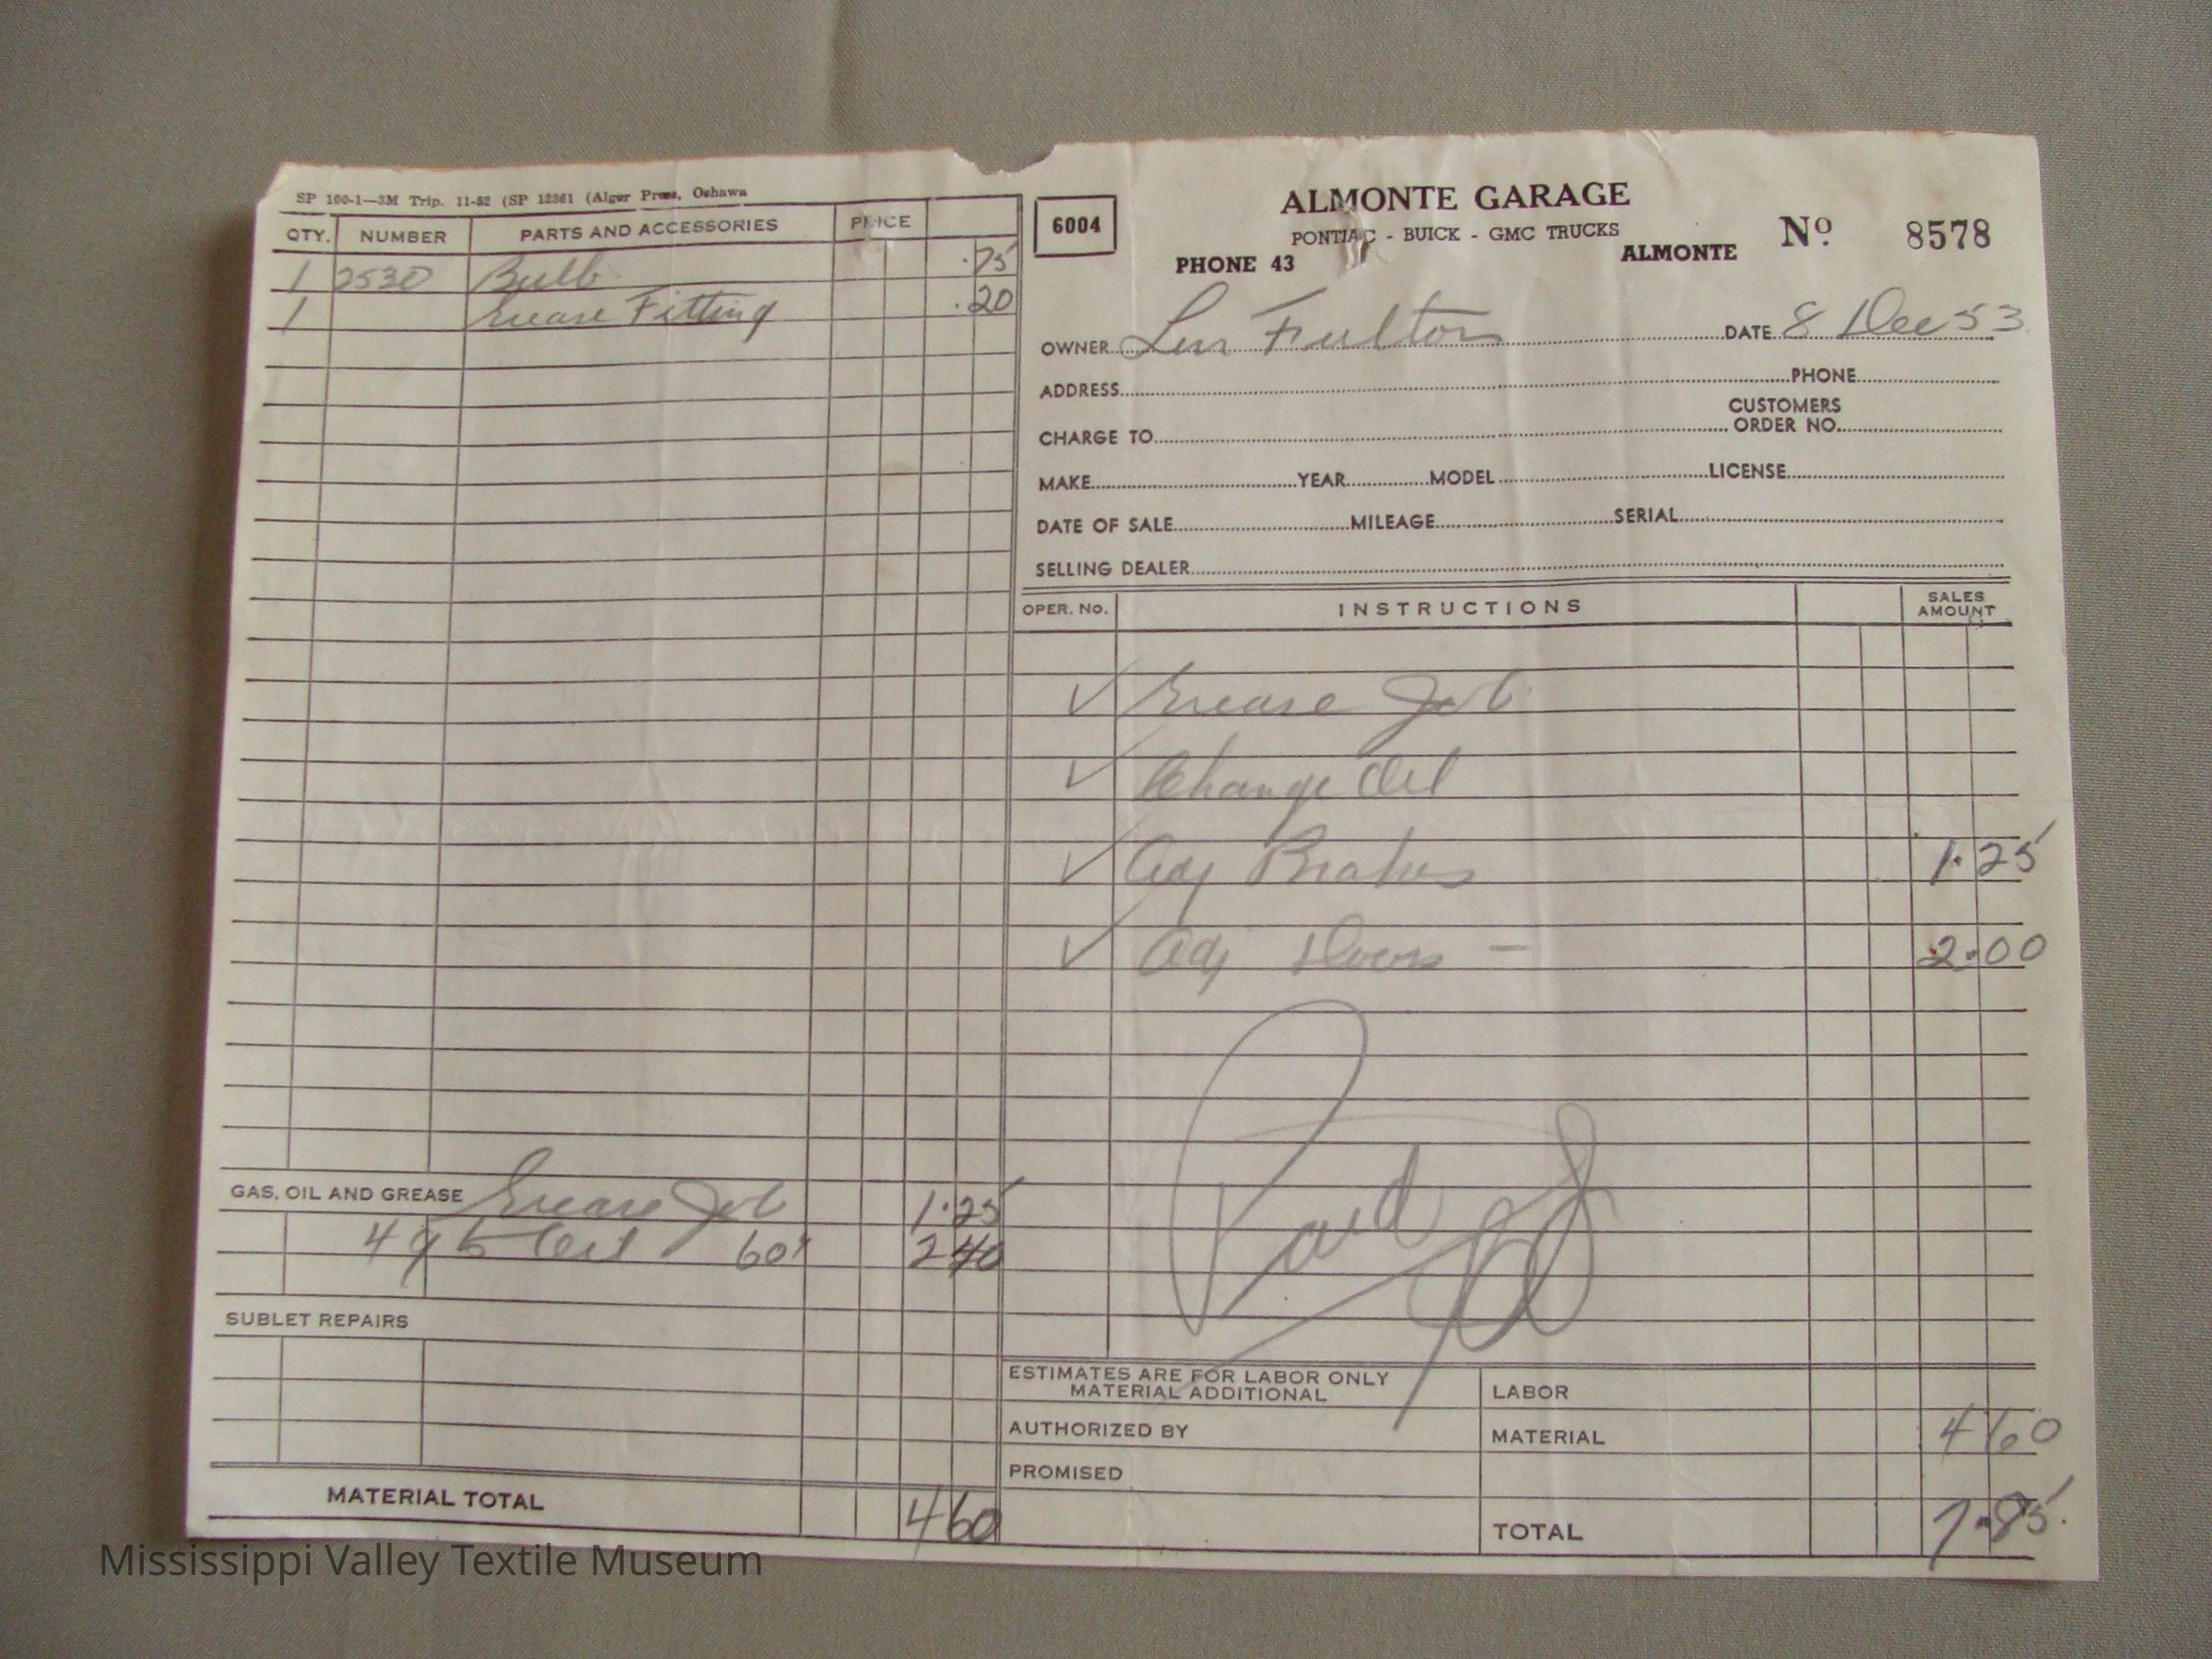 SP 100-1—3M Trip. 11-52 (SP 12361 (Alger Press, Oshawa
QTY. NUMBER PARTS AND ACCESSORIES PRICE
1 2530 Bulb .75
1 Grease Fitting .20
GAS, OIL AND GREASE Grease Job 1.25
4 qts Oil 60¢ 2 40
SUBLET REPAIRS
MATERIAL TOTAL 4 60
6004
ALMONTE GARAGE
PONTIAC - BUICK - GMC TRUCKS
PHONE 43 ALMONTE Nº 8578
OWNER Les Fulton DATE 8 Dec 53
ADDRESS PHONE
CHARGE TO CUSTOMERS ORDER NO.
MAKE YEAR MODEL LICENSE
DATE OF SALE MILEAGE SERIAL
SELLING DEALER
OPER. NO. INSTRUCTIONS SALES AMOUNT
✓ Grease Job
✓ Change Oil
✓ Adj Brakes 1.25
✓ Adj Doors — 2.00
Paid
ESTIMATES ARE FOR LABOR ONLY
MATERIAL ADDITIONAL
LABOR
AUTHORIZED BY
MATERIAL 4 60
PROMISED
TOTAL 7.85
Mississippi Valley Textile Museum